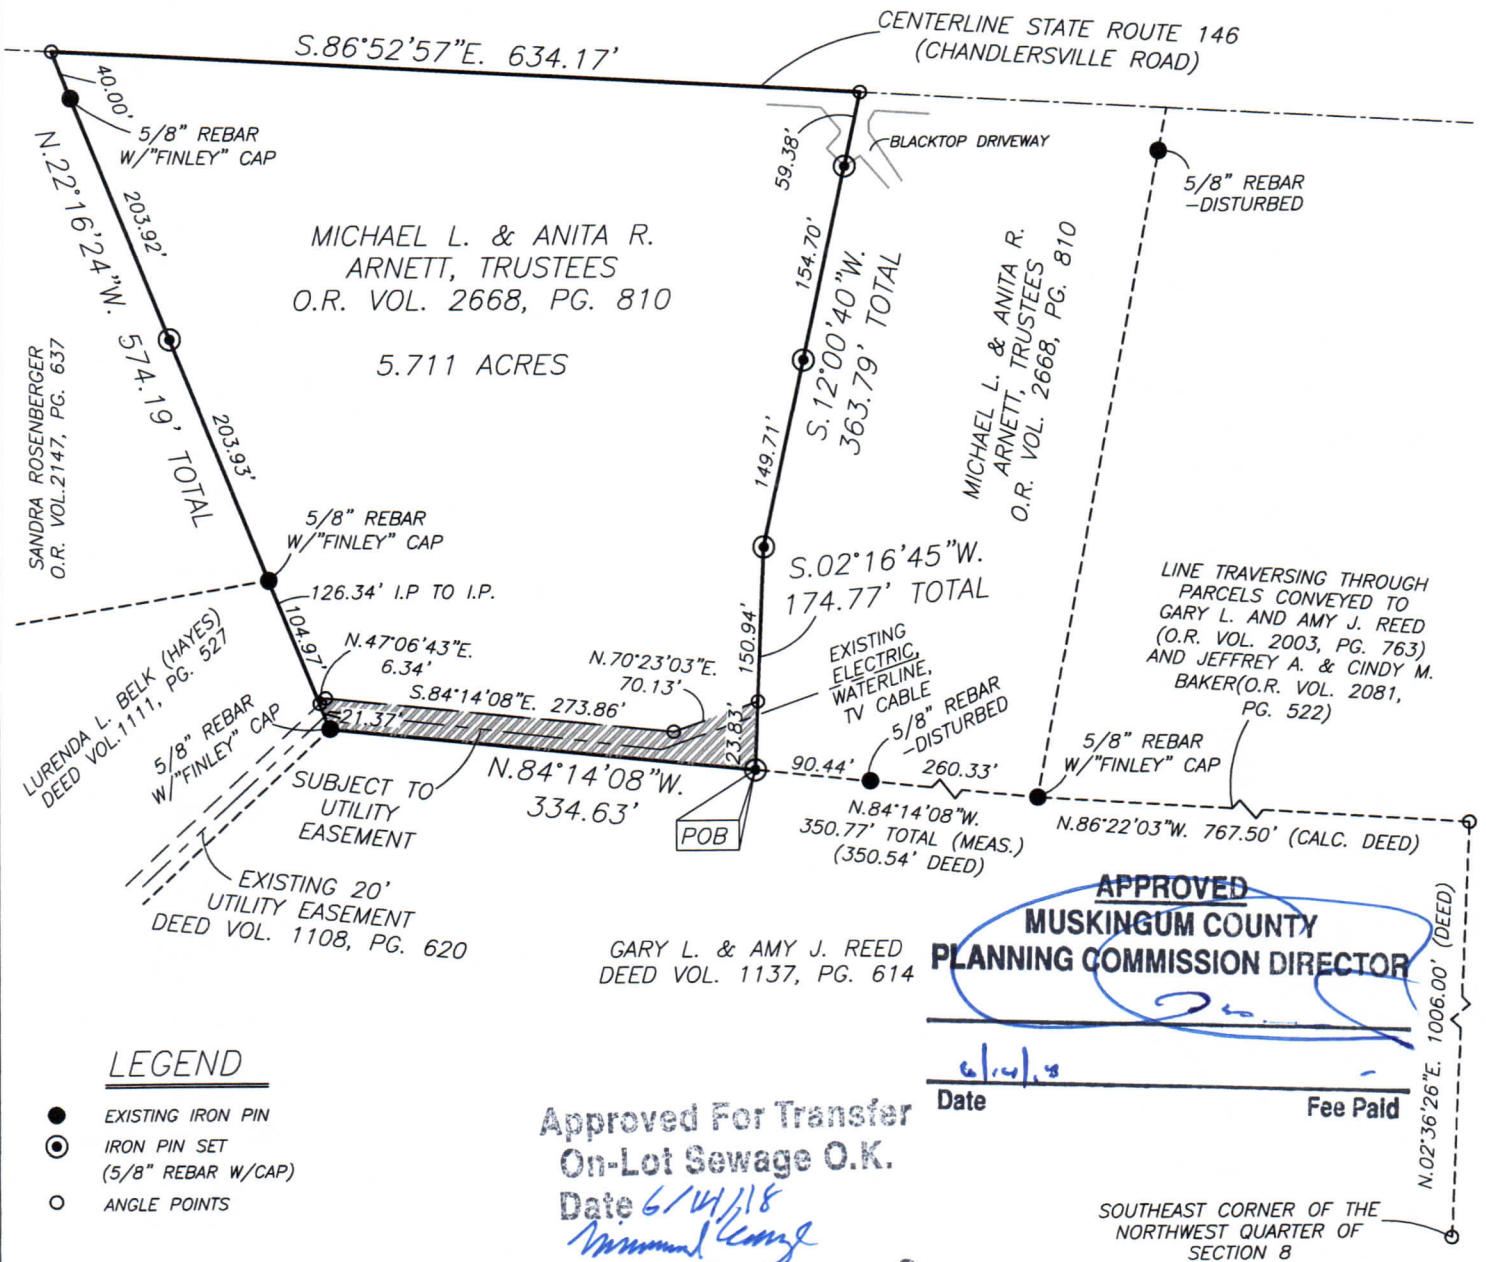 CENTERLINE STATE ROUTE 146
(CHANDLERSVILLE ROAD)
S.86°52'57"E. 634.17'
40.00'
5/8" REBAR
W/"FINLEY" CAP
N.22°16'24"W. 574.19' TOTAL
203.92'
203.93'
MICHAEL L. & ANITA R.
ARNETT, TRUSTEES
O.R. VOL. 2668, PG. 810
5.711 ACRES
59.38'
BLACKTOP DRIVEWAY
154.70'
S.12°00'40"W.
363.79' TOTAL
149.71'
5/8" REBAR
-DISTURBED
MICHAEL L. & ANITA R.
ARNETT, TRUSTEES
O.R. VOL. 2668, PG. 810
SANDRA ROSENBERGER
O.R. VOL.2147, PG. 637
5/8" REBAR
W/"FINLEY" CAP
126.34' I.P TO I.P.
104.97'
S.02°16'45"W.
174.77' TOTAL
150.94'
LINE TRAVERSING THROUGH
PARCELS CONVEYED TO
GARY L. AND AMY J. REED
(O.R. VOL. 2003, PG. 763)
AND JEFFREY A. & CINDY M.
BAKER(O.R. VOL. 2081,
PG. 522)
LURENDA L. BELK (HAYES)
DEED VOL.1111, PG. 527
N.47°06'43"E.
6.34'
S.84°14'08"E. 273.86'
N.70°23'03"E.
70.13'
EXISTING
ELECTRIC,
WATERLINE,
TV CABLE
5/8" REBAR
-DISTURBED
5/8" REBAR
W/"FINLEY" CAP
21.37'
23.83'
N.84°14'08"W.
334.63'
SUBJECT TO
UTILITY
EASEMENT
POB
90.44'
260.33'
N.84°14'08"W.
350.77' TOTAL (MEAS.)
(350.54' DEED)
5/8" REBAR
W/"FINLEY" CAP
N.86°22'03"W. 767.50' (CALC. DEED)
EXISTING 20'
UTILITY EASEMENT
DEED VOL. 1108, PG. 620
GARY L. & AMY J. REED
DEED VOL. 1137, PG. 614
APPROVED
MUSKINGUM COUNTY
PLANNING COMMISSION DIRECTOR
Date
Fee Paid
N.02°36'26"E. 1006.00' (DEED)
LEGEND
EXISTING IRON PIN
IRON PIN SET
(5/8" REBAR W/CAP)
ANGLE POINTS
Approved For Transfer
On-Lot Sewage O.K.
Date 6/14/18
SOUTHEAST CORNER OF THE
NORTHWEST QUARTER OF
SECTION 8